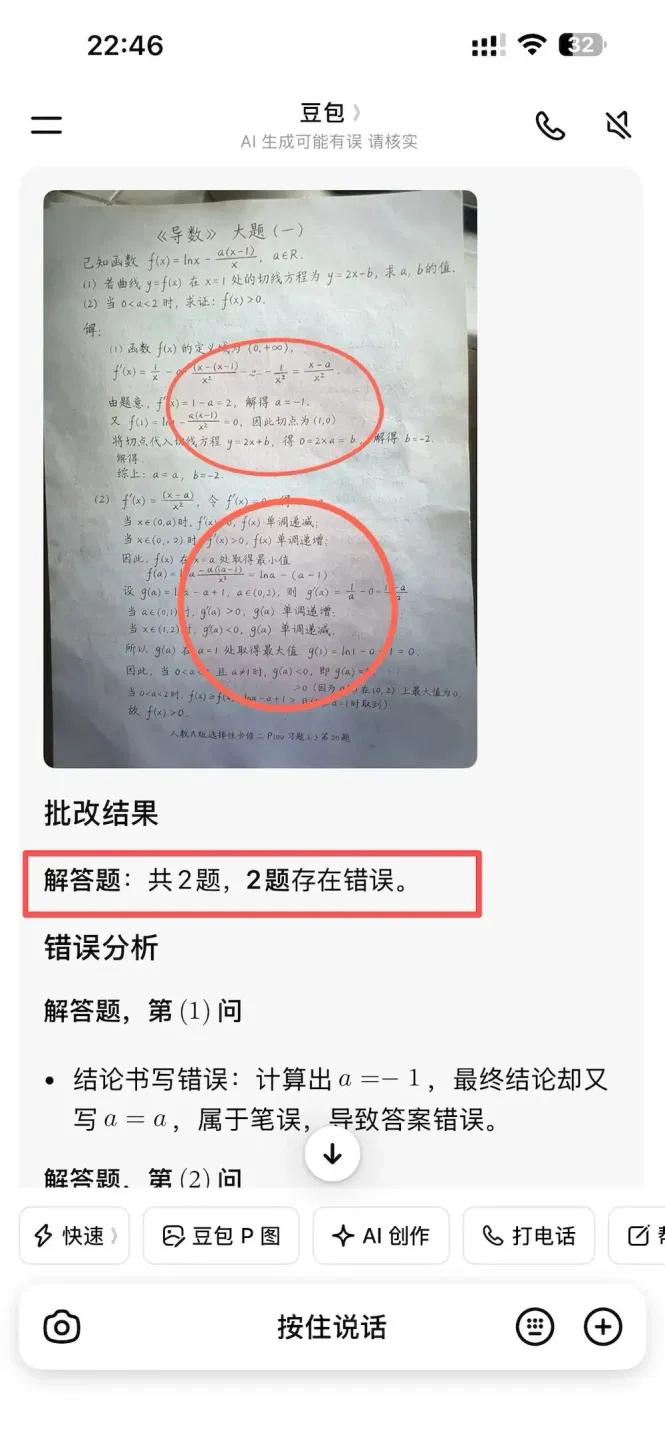 22:46
32
豆包
AI 生成可能有误 请核实
《导数》 大题(一)
已知函数 f(x)=lnx- a(x-1)/x, a∈R.
(1) 若曲线 y=f(x) 在 x=1 处的切线方程为 y=2x-b, 求 a, b的值.
(2) 当 0<a<2 时, 求证: f(x)>0.
解:
(1) 函数 f(x) 的定义域为 (0,+∞),
f'(x)= 1/x - (x-(x-1))/x² 1/x² = x-a/x².
由题意, f'(x)=1-a=2, 解得 a=-1.
又 f(1)=ln - a(x-1)/x² =0, 因此切点为 (1,0)
将切点代入切线方程 y=2x+b, 得 0=2×a=b, 解得 b=-2.
解得.
综上: a=a, b=-2.
(2) f'(x)= (x-a)/x², 令 f'(x)
当 x∈(0,a)时, f'(x) 0, f(x) 单调递减;
当 x∈(0,,2) 时 f'(x)>0, f(x) 单调递增;
因此, f(x) 在 x=a 处取得最小值
f(a)= -a(a-1)/x² = lna-(a-1)
设 g(a)=l a-a+1, a∈(0,2), 则 g'(a)= 1/a -0- -a
当 a∈(0,1) , g'(a)>0, g(a) 单调递增;
当 x∈(1,2) , g'(a)<0, g(a) 单调递减.
所以 g(a) 在 a=1 处取得最大值 g(1)=ln1-0 1=0.
因此, 当 0<a< 且 a≠1时, g(a)<0, 即 g(a)
>0 (因为 在 (0,2) 上最大值为0,
当 0<a<2时, f(x)≥f( lna-a+1> a=1时取到)
故 f(x)>0.
人教A版选择性必修二 习题 第20题
批改结果
解答题：共 2 题，2题存在错误。
错误分析
解答题，第 (1) 问
• 结论书写错误：计算出 a =− 1，最终结论却又
写 a = a，属于笔误，导致答案错误。
解答题，第 (2) 问
快速
豆包 P 图
AI 创作
打电话
按住说话